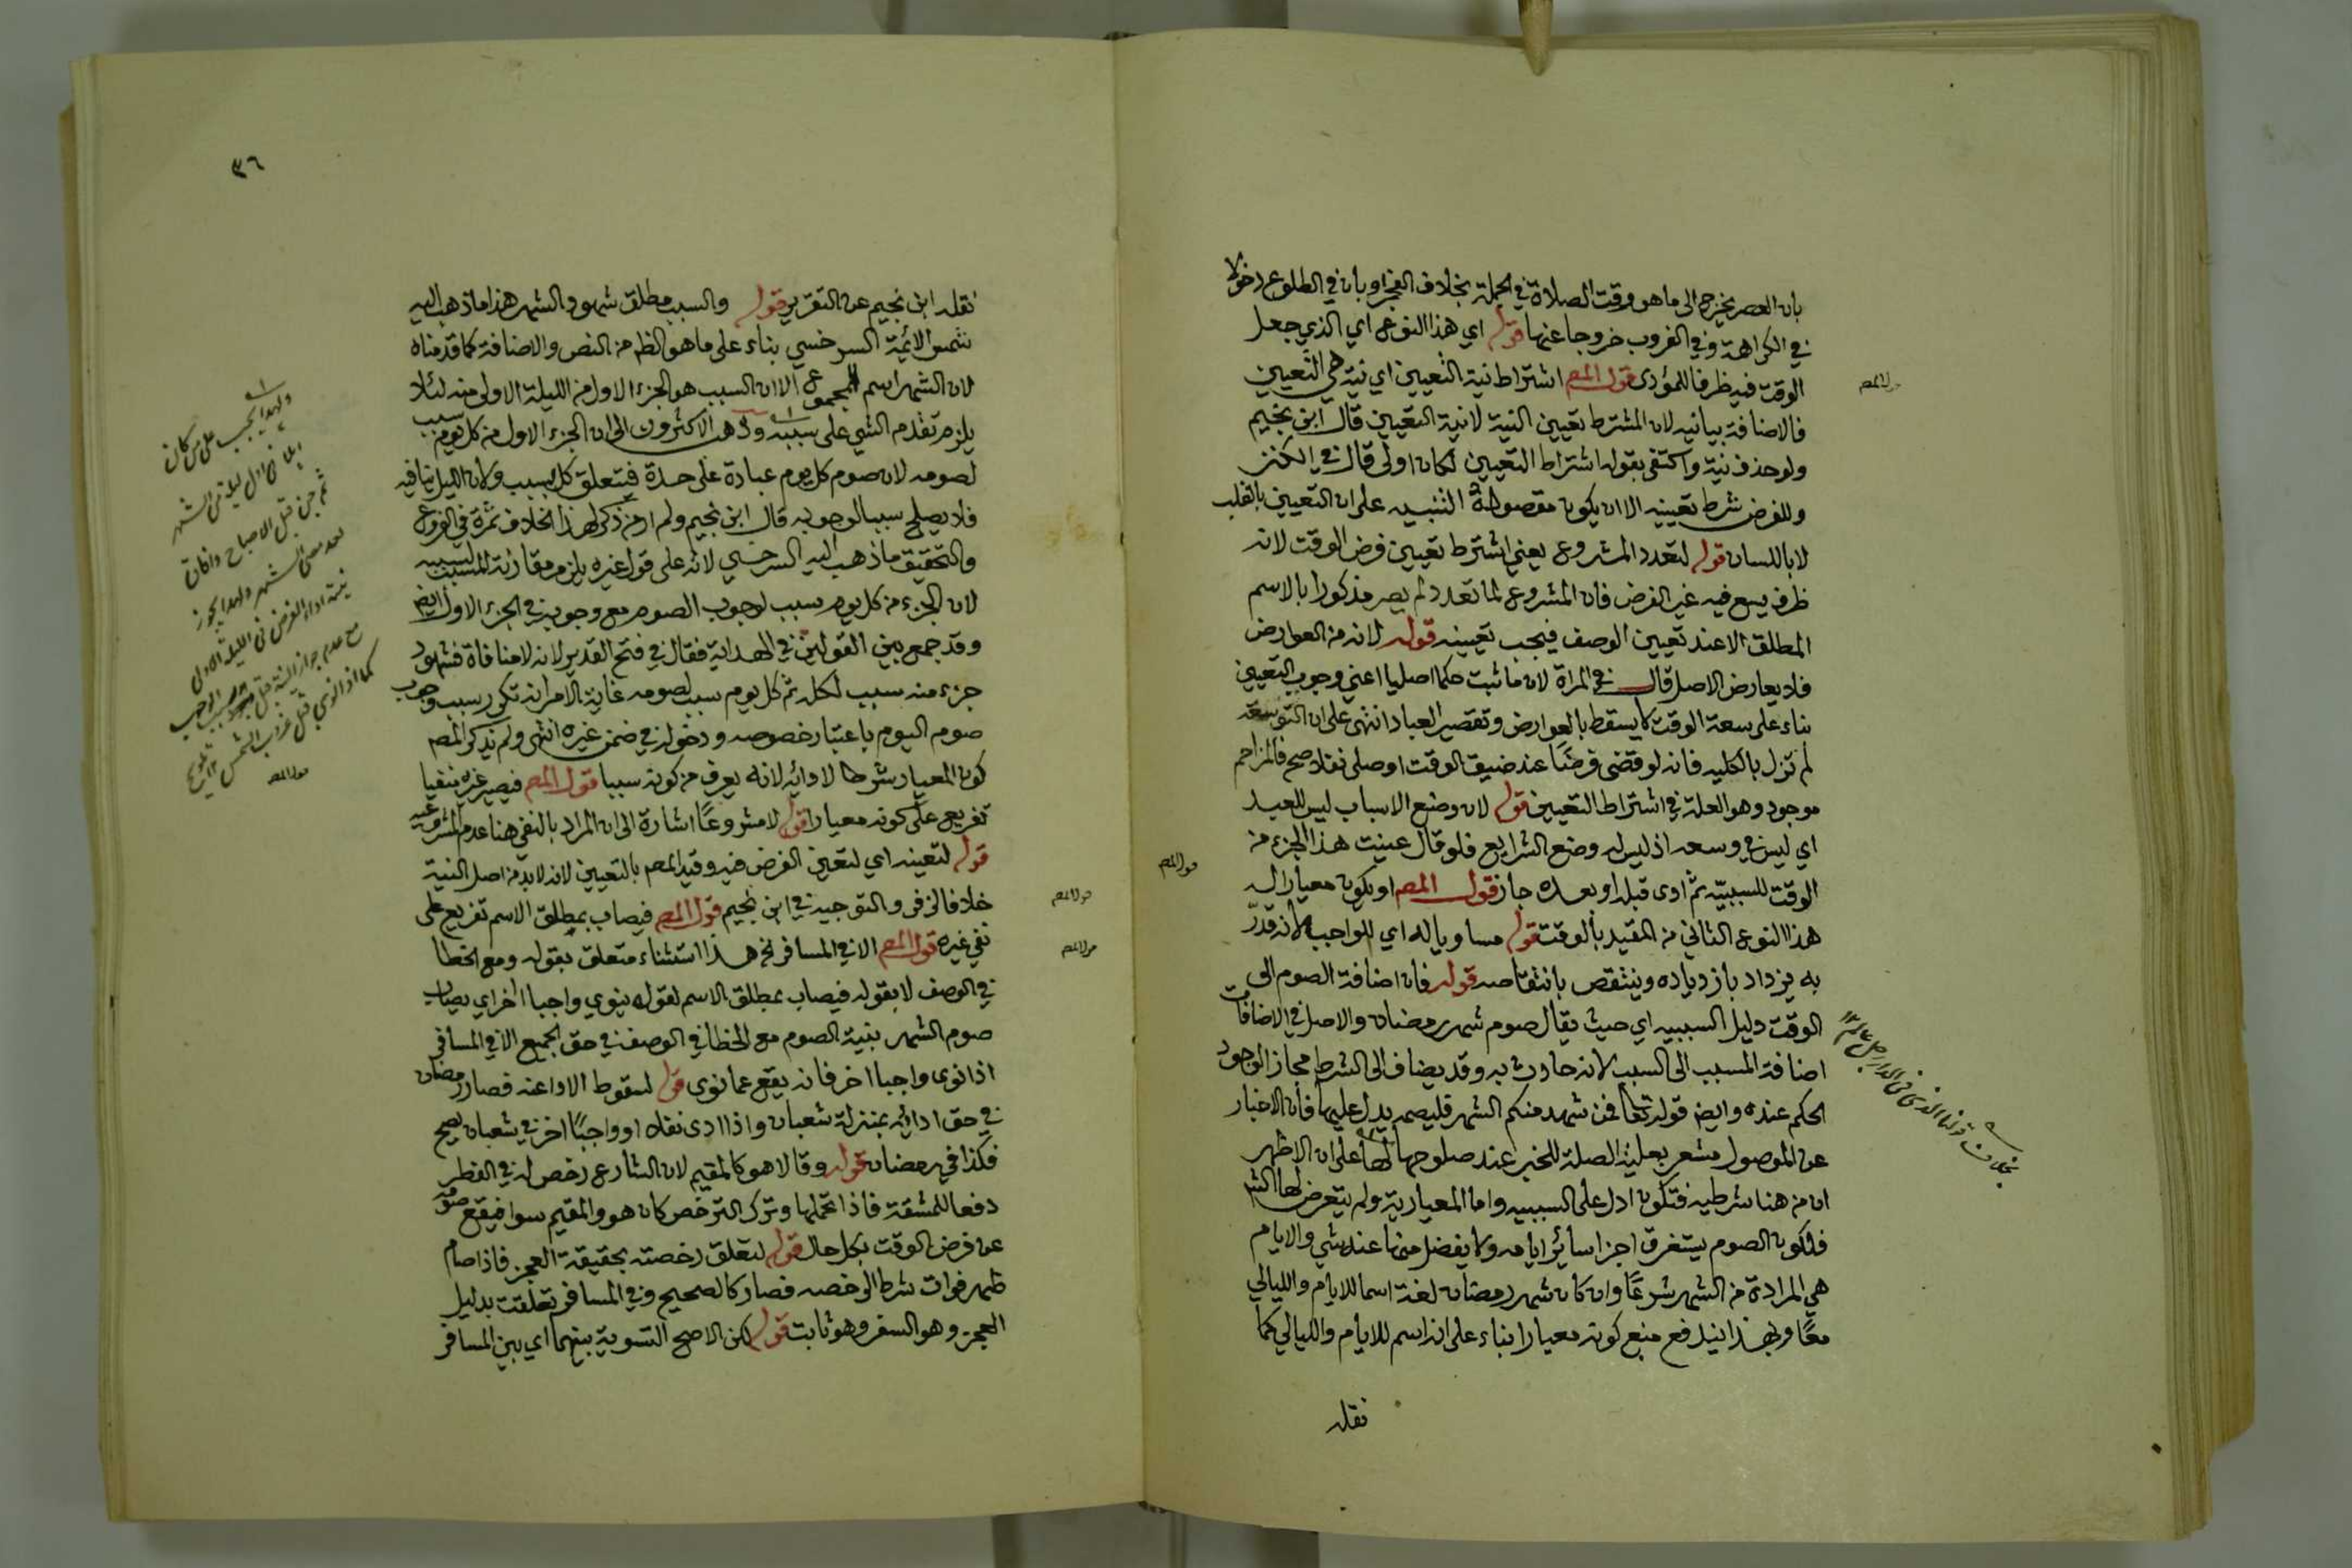 بان العصر يخرج الى ما هو وقت الصلاة في الجملة بخلاف الفجر او بان في الطلوع دخولا
في الكراهة وفي الغروب خروجا عنها قوله اي هذا النوع اي الذي جعل
الوقت فيه ظرفا للمؤدى قول المص اشتراط نية التعيين اي نية هي التعيين
فالاضافة بيانيه لان المشترط تعيين النية لا نية التعيين قال ابن نجيم
ولو حذف نية واكتفى بقوله اشتراط التعيين لكان اولى قال في الكنز
وللفرض شرط تعيينه الا ان يكون مقصوده التنبيه على ان التعيين بالقلب
لا باللسان قوله لتعدد المشروع يعني اشترط تعيين فرض الوقت لانه
ظرف يسع فيه غير الفرض فان المشروع لما تعدد لم يصر مذكورا بالاسم
المطلق الا عند تعيين الوصف فيجب تعيينه قوله لانه من العوارض
فلا يعارض الاصل قال في المراة لان ما ثبت حكما اصليا اعني وجوب التعيين
بناء على سعة الوقت لا يسقط بالعوارض وتقصير العباد انتهى على ان التوسعة
لم تزل بالكليه فانه لو قضى فرضًا عند ضيق الوقت او صلى نفلا صح فالمزاحم
موجود وهو العلة في اشتراط التعيين قوله لان وضع الاسباب ليس للعبد
اي ليس في وسعه اذ ليس له وضع الشرايع فلو قال عينت هذا الجزء من
الوقت للسببيّه ثم ادى قبله او بعده جاز قول المص او يكون معيارا له
هذا النوع الثاني من المقيد بالوقت قوله مساويا له اي للواجب لانه قدّر
به يزداد بازدياده وينتقص بانتقاصه قوله فان اضافة الصوم الى
الوقت دليل السببيه اي حيث يقال صوم شهر رمضان والاصل في الاضافات
اضافة المسبب الى السبب لانه حادث به وقد يضاف الى الشرط مجازا لوجود
الحكم عنده وايض قوله تعالى فمن شهد منكم الشهر فليصمه يدل عليها فان الاخبار
عن الموصول مشعر بعلية الصلة للخبر عند صلوحها لها على ان الاظهر
ان من هنا شرطيه فتكون ادل على السببيه واما المعيارية ولم يتعرض لها الش
فلكون الصوم يستغرق اجزا سائر ايامه ولا يفضل منها عنه شي والايام
هي المرادة من الشهر شرعًا وان كان شهر رمضان لغة اسما للايام والليالي
معًا وبهذا يندفع منع كونه معيارا بناء على انه اسم للايام والليالي كما
نقله
قول المص
قول المص
٣٦
نقله ابن نجيم عن التقرير قوله والسبب مطلق شهود الشهر هذا ما ذهب اليه
شمس الائمة السرخسي بناء على ما هو الظ من النص والاضافة كما قدمناه
لان الشهر اسم للمجموع الا ان السبب هو الجزء الاول من الليلة الاولى منه لئلا
يلزم تقدم الشي على سببه وذهب الاكثرون الى ان الجزء الاول من كل يوم سبب
لصومه لان صوم كل يوم عبادة على حدة فتتعلق كل بسبب ولان الليل ينافيه
فلا يصلح سببا لوجوبه قال ابن نجيم ولم ار من ذكر لهذا الخلاف ثمرة في الفروع
والتحقيق ما ذهب اليه السرخسي لانه على قول غيره يلزم مقارنة المسبب لسببه
لان الجزء من كل يوم سبب لوجوب الصوم مع وجوبه في الجزء الاول ايض
وقد جمع بين القولين في الهداية فقال في فتح القدير لانه لا منافاة فشهود
جزء منه سبب لكله ثم كل يوم سبب لصومه غاية الامر انه تكرر سبب وجوب
صوم اليوم باعتبار خصوصه ودخوله في ضمن غيره انتهى ولم يذكر المص
كون المعيار شرطا لادائه لانه يعرف من كونه سببا قول المص فيصير غيره منفيا
تفريع على كونه معيارا قوله لا مشروعًا اشارة الى ان المراد بالنفي هنا عدم المشروعيه
قوله لتعينه اي لتعين الفرض فيه وقيد المص بالتعيين لانه لا بد من اصل النية
خلافا لزفر والتوجيه في ابن نجيم قول المص فيصاب بمطلق الاسم تفريع على
نفي غيره قول المص الا في المسافر الخ هذا استثناء متعلق بقوله ومع الخطا
في الوصف لا بقوله فيصاب بمطلق الاسم لقوله ينوي واجبا اخر اي يصاب
صوم الشهر بنية الصوم مع الخطا في الوصف في حق الجميع الا في المسافر
اذا نوى واجبا اخر فانه يقع عما نوى قوله لسقوط الاداعنه فصار رمضان
في حق ادائه بمنزلة شعبان واذا ادى نفلا او واجبًا اخر في شعبان يصح
فكذا في رمضان قوله وقالا هو كالمقيم لان الشارع رخص له في الفطر
دفعا للمشقة فاذا تحملها وترك الترخص كان هو والمقيم سوا فيقع صومه
عن فرض الوقت بكل حال قوله لتعلق رخصته بحقيقة العجز فاذا صام
ظهر فوات شرط الرخصه فصار كالصحيح وفي المسافر تعلقت بدليل
العجز وهو السفر وهو ثابت قوله لكن الاصح التسوية بينهما اي بين المسافر
قول المص
قول المص
ولهذا يجب على من كان
اهلا في اول ليلة من الشهر
ثم جن قبل الاصباح وافاق
بعد مضى الشهر ولهذا يجوز
نية اداء الفرض في الليلة الاولى
مع عدم جواز النية قبل سبب الوجوب
كما اذا نوى قبل غروب الشمس